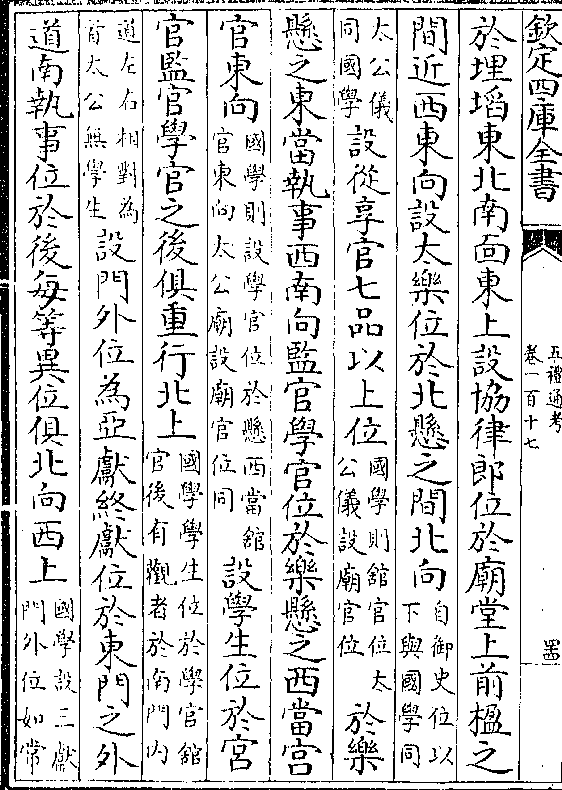 欽定四庫全書
五禮通考
卷一百十七
於埋塪東北南面東上設協律郎位於廟堂上前楹之
間近西東向設太樂位於北懸之間北向自御史位以下與國學同
太公儀同國學設從享官七品以上位國學則館官位太公儀設廟官位於樂
懸之東當執事西南向監官學官位於樂懸之西當宫
官東向國學則設學官位於懸西當舘官東向太公廟設廟官位同設學生位於宫
官監官學官之後俱重行北上國學學生位於學官舘官後有觀者於南門内
道左右相對為首太公無學生設門外位為亞獻終獻位於東門之外
道南執事位於後每等異位俱北向西上國學設三獻門外位如常